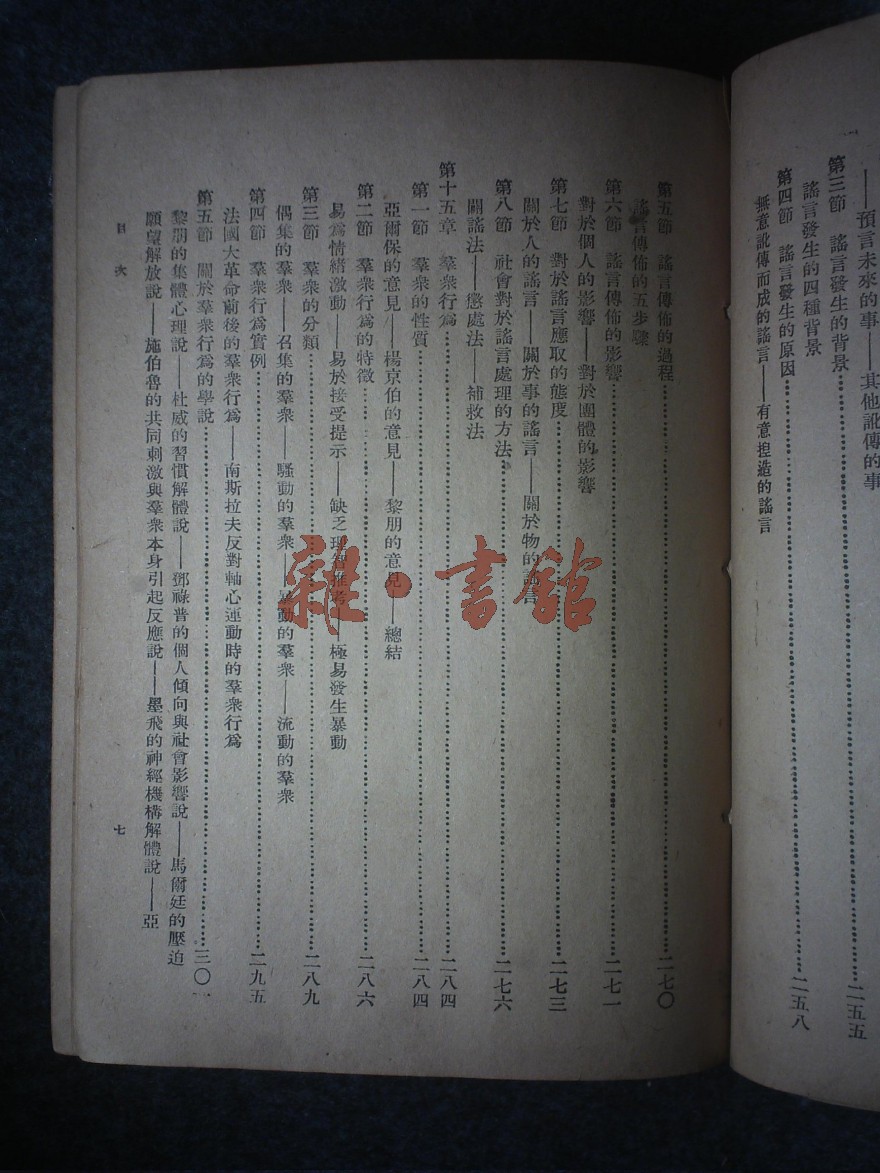 ——預言未來的事——其他訛傳的事
第三節 謠言發生的背景……二五五
謠言發生的四種背景
第四節 謠言發生的原因……二五八
無意訛傳而成的謠言——有意揑造的謠言
第五節 謠言傳佈的過程……二七〇
謠言傳佈的五步驟
第六節 謠言傳佈的影響……二七一
對於個人的影響——對於團體的影響
第七節 對於謠言應取的態度……二七三
關於人的謠言——關於事的謠言——關於物的謠言
第八節 社會對於謠言處理的方法……二七六
闢謠法——懲處法——補救法
第十五章 羣衆行爲……二八四
第一節 羣衆的性質……二八四
亞爾保的意見——楊京伯的意見——黎朋的意見——總結
第二節 羣衆行爲的特徵……二八六
易爲情緒激動——易於接受提示——缺乏理智推考——極易發生暴動
第三節 羣衆的分類……二八九
偶集的羣衆——召集的羣衆——騷動的羣衆——暴動的羣衆——流動的羣衆
第四節 羣衆行爲實例……二九五
法國大革命前後的羣衆行爲——南斯拉夫反對軸心運動時的羣衆行爲
第五節 關於羣衆行爲的學說……三〇一
黎朋的集體心理說——杜威的習慣解體說——鄧祿普的個人傾向與社會影響說——馬爾廷的壓迫
願望解放說——施伯魯的共同刺激與羣衆本身引起反應說——墨飛的神經機構解體說——亞
目次
七
雜·書館